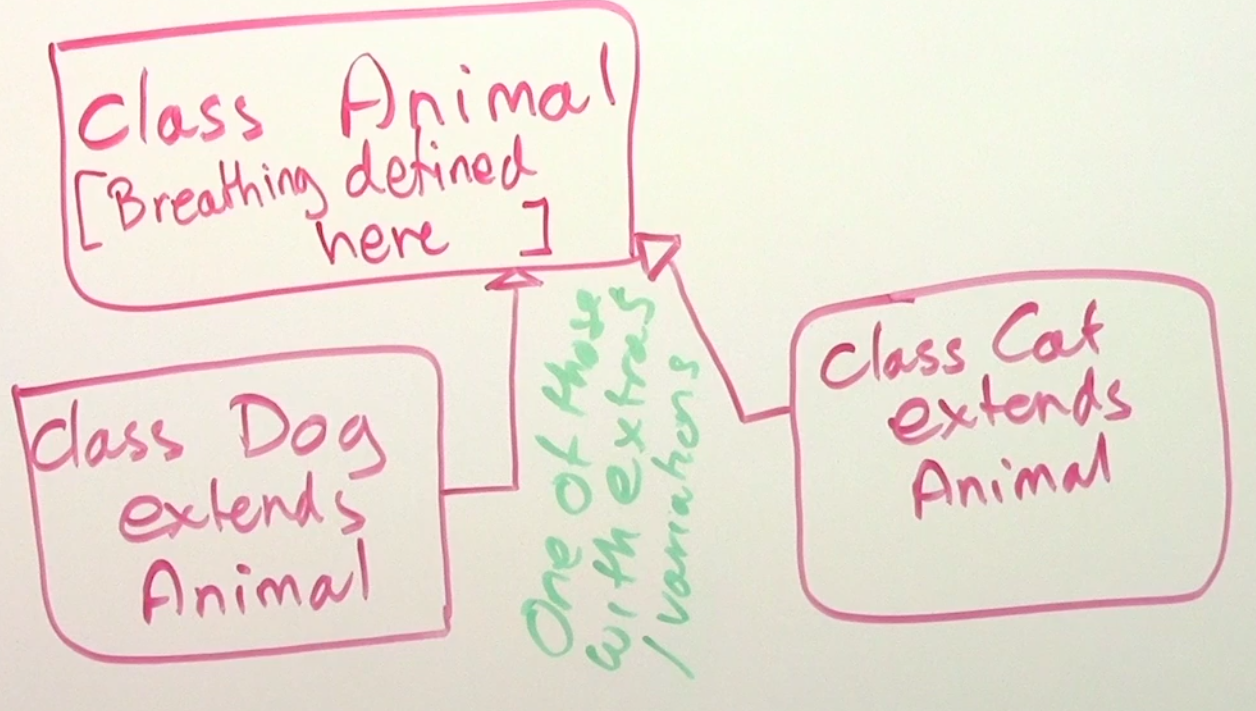 Class Animal
[Breathing defined
here ]
Class Dog
extends
Animal
One of those
with extras
/variations
Class Cat
extends
Animal